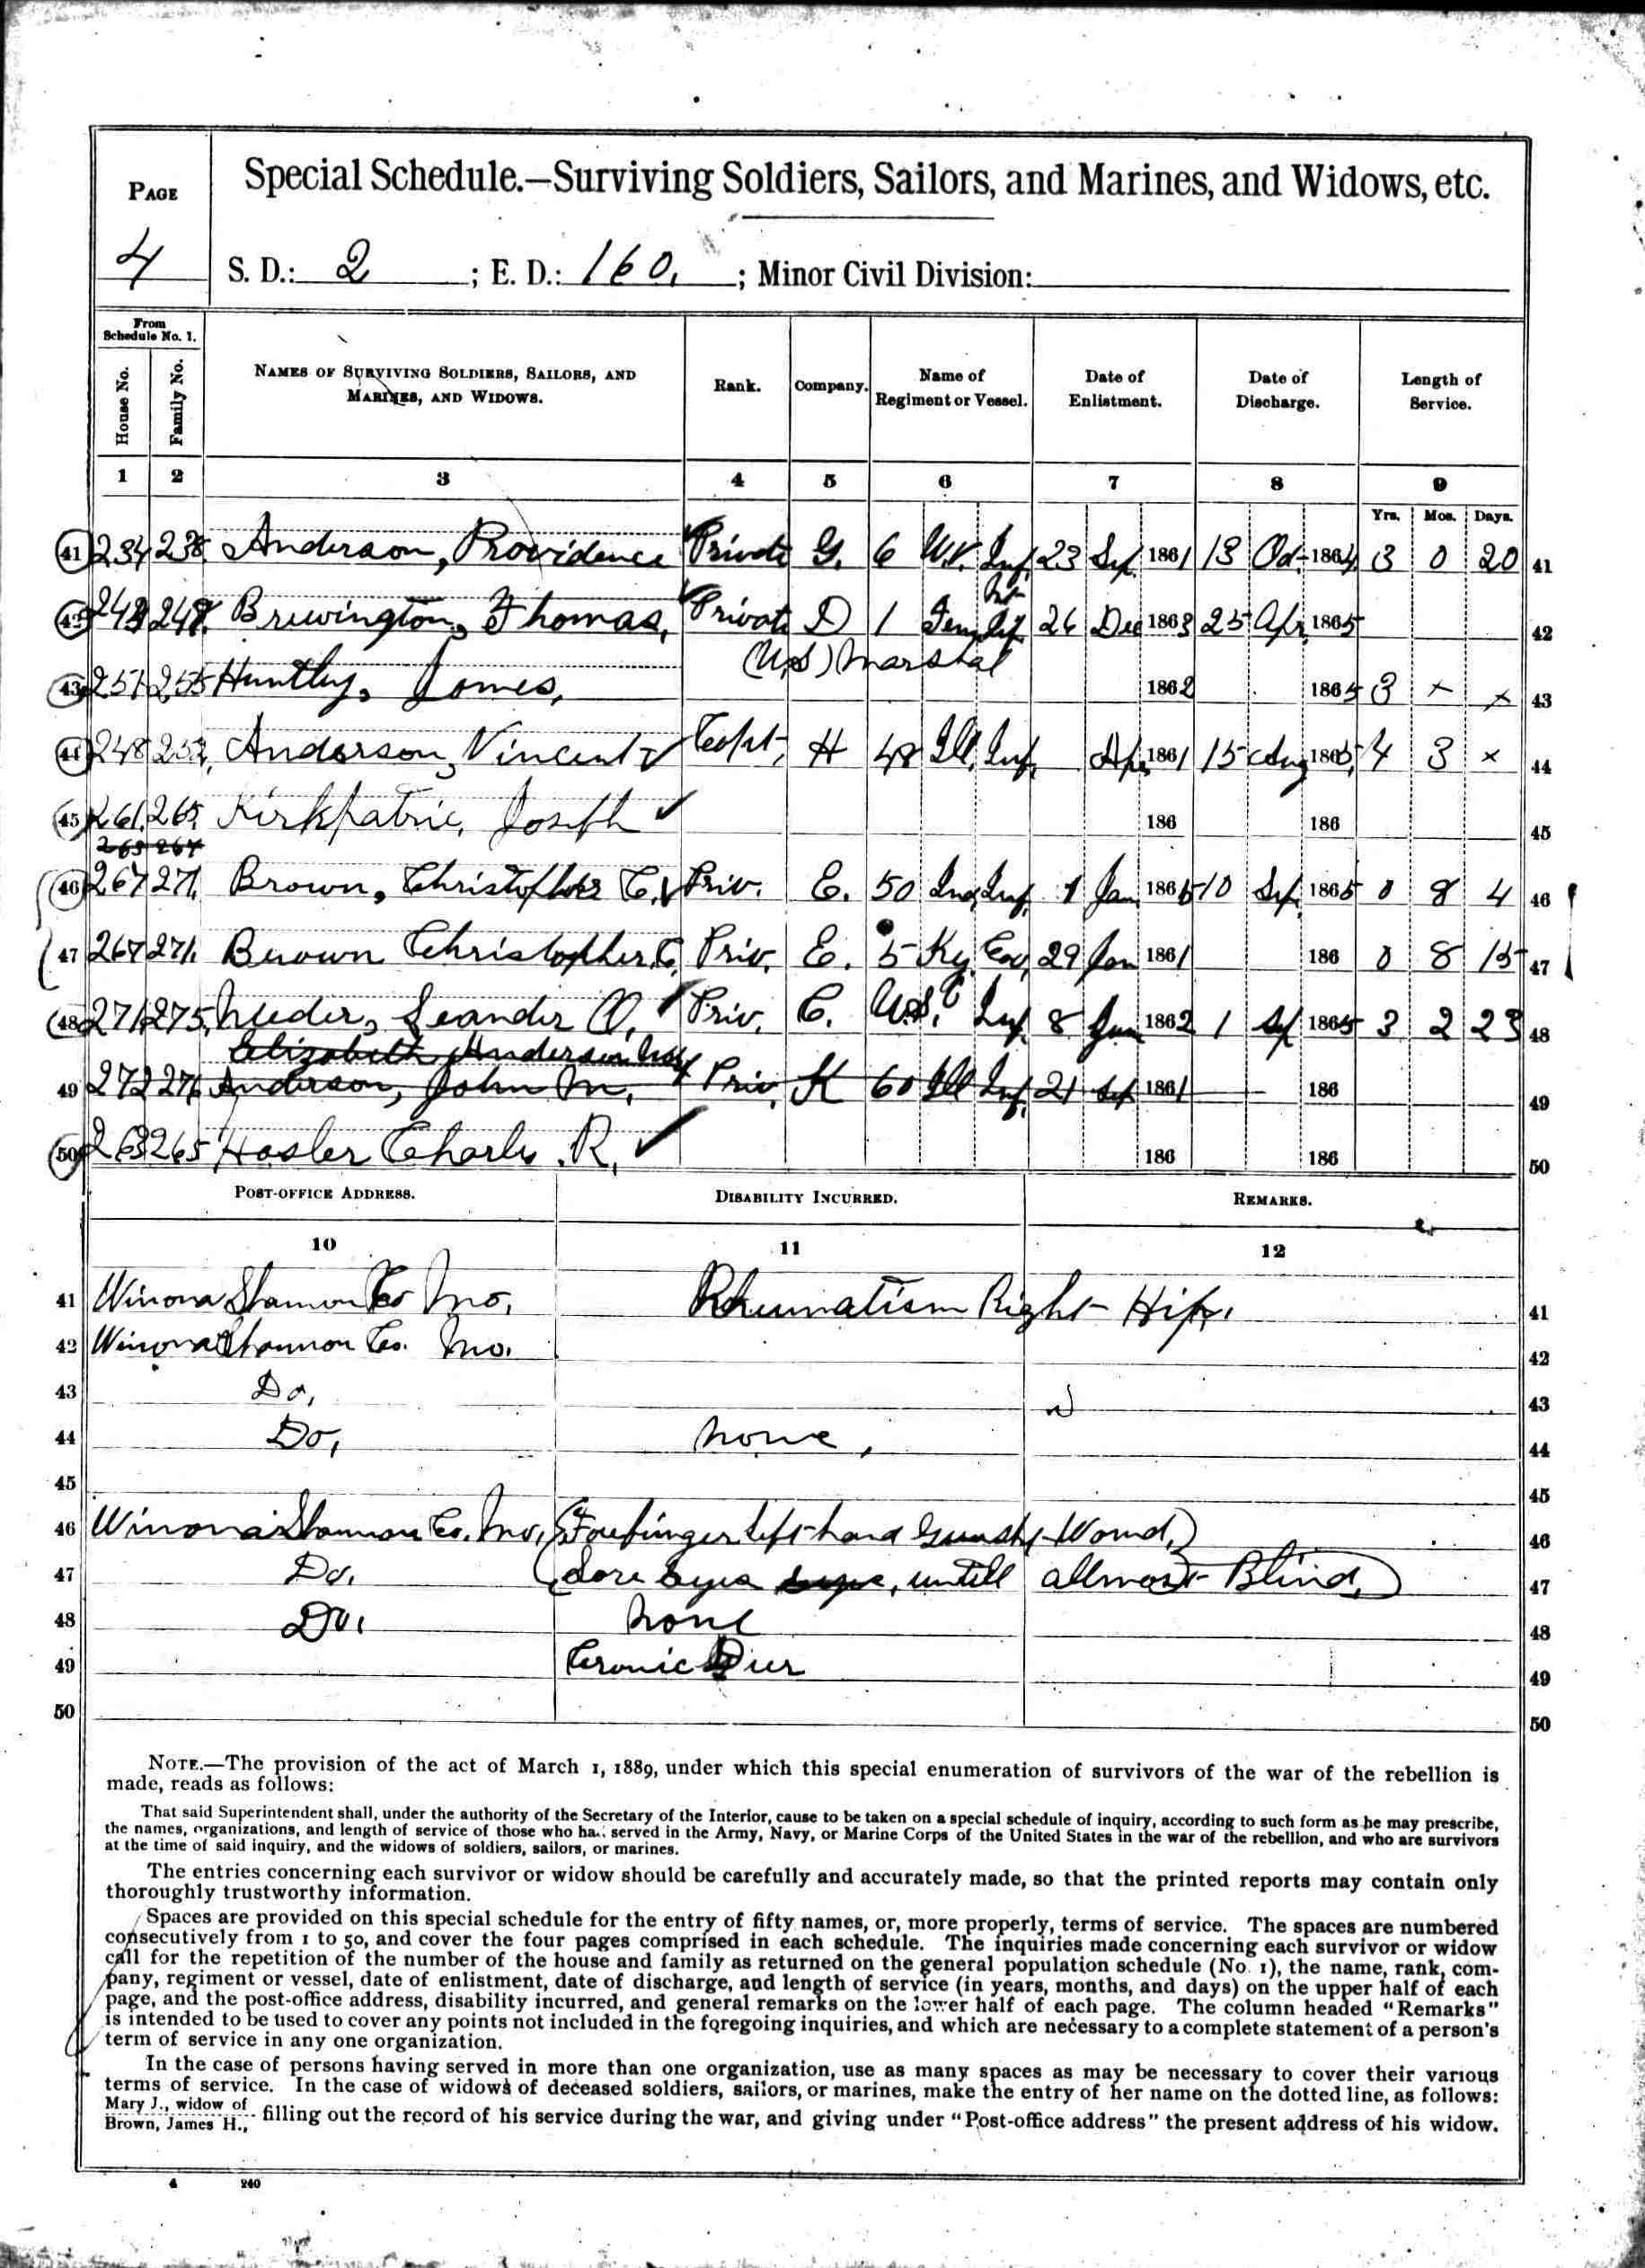 PAGE
4
Special Schedule.—Surviving Soldiers, Sailors, and Marines, and Widows, etc.
S. D.: 2 ; E. D.: 160. ; Minor Civil Division:
From Schedule No. 1.
House No.
Family No.
NAMES OF SURVIVING SOLDIERS, SAILORS, AND MARINES, AND WIDOWS.
Rank.
Company.
Name of Regiment or Vessel.
Date of Enlistment.
Date of Discharge.
Length of Service.
1 2 3 4 5 6 7 8 9
Yrs. Mos. Days.
41 234 238. Anderson, Providence Private G. 6 W.V. Inf. 23 Sep. 1861 13 Oct. 1864 3 0 20 41
42 247. Brewington, Thomas, Private D 1 26 Dec 1863 25 Apr. 1865 42
(U,S) Marshal
43 251 255 Huntly, James, 1862 1865 3 × × 43
44 248 252, Anderson, Vincent Capt, H 48 Ill. Inf. Ap. 1861 15 Aug 1865, 4 3 × 44
45 261. 265. Kirkpatric, Joseph 186 186 45
263 267
46 267 271. Brown, Christopher C. Priv. E. 50 Ind. Inf. 1 Jan 1865 10 Sep. 1865 0 8 4 46
47 267 271. Brown Christopher C, Priv. E. 5 Ky. Cav, 29 Jan 1861 186 0 8 15 47
48 271 275. Leander O. Priv. C. U.S. Inf. 8 Jun 1862 1 Sep 1865 3 2 23 48
Elizabeth Anderson
49 272 276 Anderson, John M. Priv. K 60 Ill Inf. 21 Sep 1861 186 49
50 263 265 Hosler Charls R. 186 186 50
POST-OFFICE ADDRESS.
DISABILITY INCURRED.
REMARKS.
10 11 12
41 Winona Shannon Co Mo. Rheumatism Right Hip. 41
42 Winona Shannon Co. Mo. 42
43 Do, 43
44 Do, none, 44
45 45
46 Winona Shannon Co. Mo. (Forfinger left hand Wound,) 46
47 Do. (Sore Eyes , untill allmost Blind,) 47
48 Do. none 48
49 Cronic Dier 49
50 50
NOTE.—The provision of the act of March 1, 1889, under which this special enumeration of survivors of the war of the rebellion is
made, reads as follows:
That said Superintendent shall, under the authority of the Secretary of the Interior, cause to be taken on a special schedule of inquiry, according to such form as he may prescribe,
the names, organizations, and length of service of those who had served in the Army, Navy, or Marine Corps of the United States in the war of the rebellion, and who are survivors
at the time of said inquiry, and the widows of soldiers, sailors, or marines.
The entries concerning each survivor or widow should be carefully and accurately made, so that the printed reports may contain only
thoroughly trustworthy information.
Spaces are provided on this special schedule for the entry of fifty names, or, more properly, terms of service. The spaces are numbered
consecutively from 1 to 50, and cover the four pages comprised in each schedule. The inquiries made concerning each survivor or widow
call for the repetition of the number of the house and family as returned on the general population schedule (No. 1), the name, rank, com-
pany, regiment or vessel, date of enlistment, date of discharge, and length of service (in years, months, and days) on the upper half of each
page, and the post-office address, disability incurred, and general remarks on the lower half of each page. The column headed "Remarks"
is intended to be used to cover any points not included in the foregoing inquiries, and which are necessary to a complete statement of a person's
term of service in any one organization.
In the case of persons having served in more than one organization, use as many spaces as may be necessary to cover their various
terms of service. In the case of widows of deceased soldiers, sailors, or marines, make the entry of her name on the dotted line, as follows:
Mary J., widow of
Brown, James H., filling out the record of his service during the war, and giving under "Post-office address" the present address of his widow.
4 240